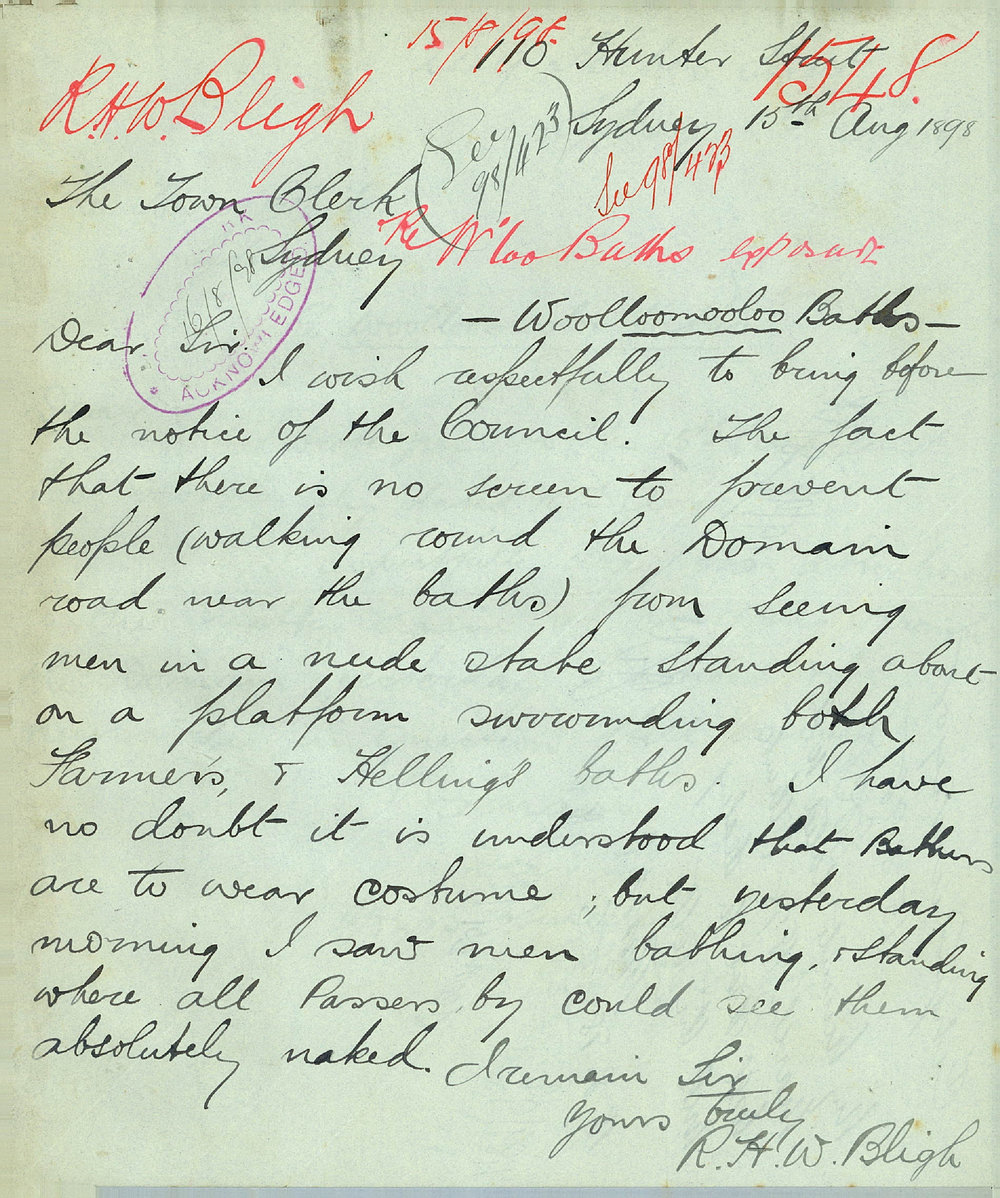 15/8/98
110 Hunter Street
1548.
R.H.W. Bligh
Sydney 15th Aug 1898
(See 98/423)
See 98/423
The Town Clerk
Sydney
Re W'loo Baths exposure
16/8/98
ACKNOWLEDGED
— Woolloomooloo Baths —
Dear Sir.
I wish respectfully to bring before
the notice of the Council. The fact
that there is no screen to prevent
people (walking round the Domain
road near the baths) from seeing
men in a nude state standing about
on a platform surrounding both
Farmer's, & Helling's baths. I have
no doubt it is understood that Bathers
are to wear costume; but yesterday
morning I saw men bathing, & standing
where all Passers by could see them
absolutely naked.
I remain Sir
Yours truly
R.H.W. Bligh